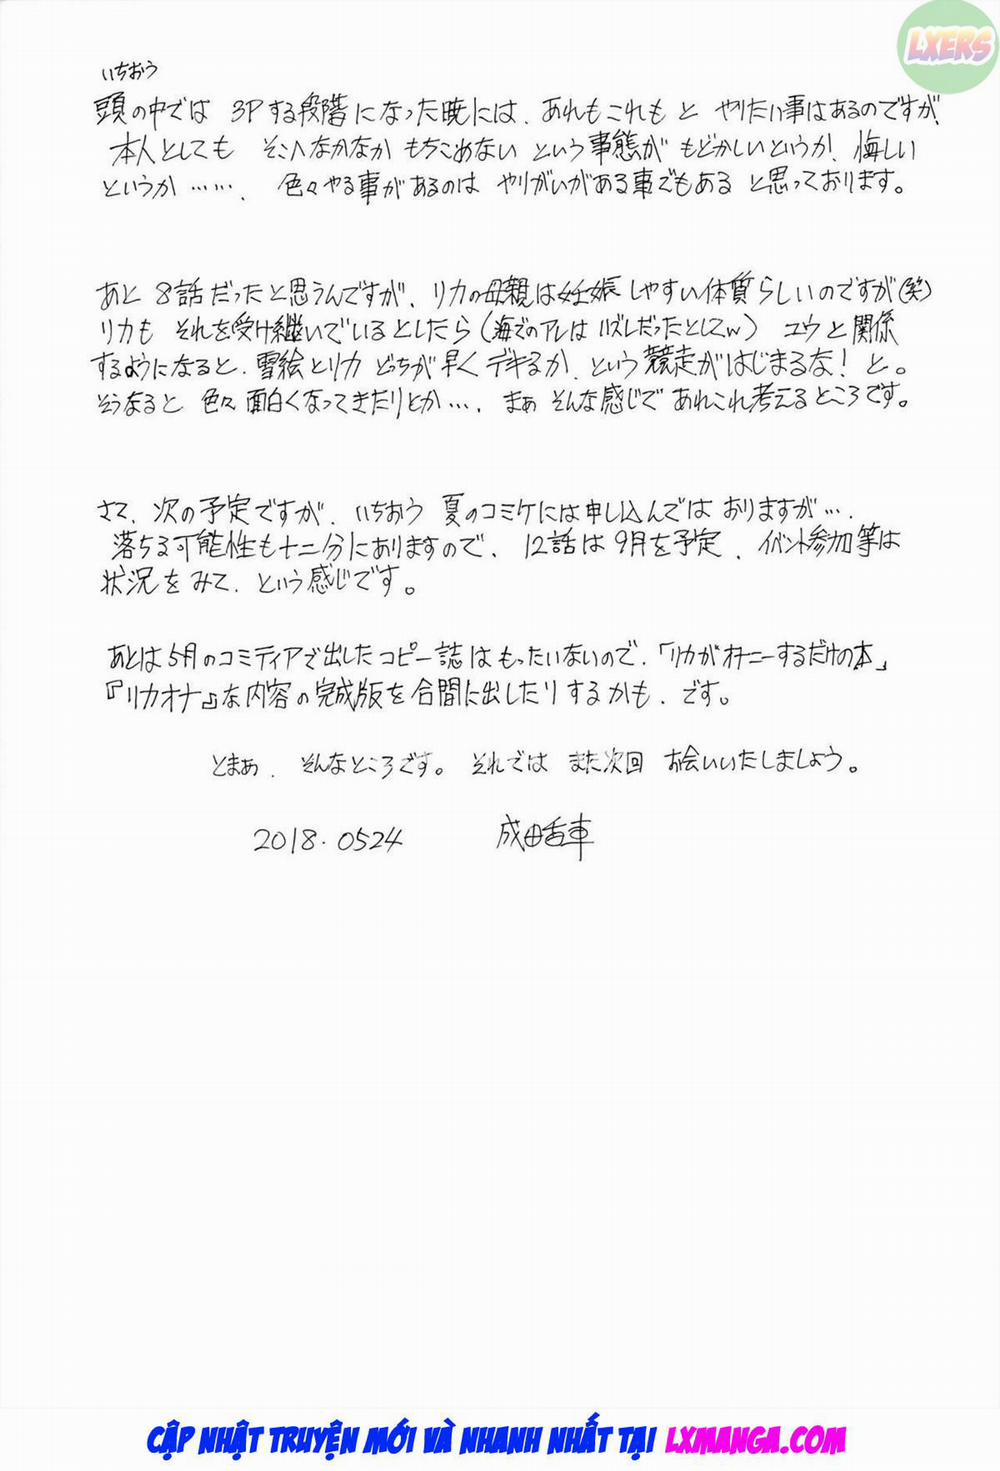 LXERS
いちおう
頭の中では 3Pする段階になった暁には、あれもこれもと やりたい事はあるのですが、
本人としても そこへなかなか もちこめない という事態が もどかしいというか、悔しい
というか……、 色々やる事があるのは やりがいがある事でもある と思っております。
あと 8話だったと思うんですが、リカの母親は妊娠しやすい体質らしいのですが(笑)
リカも それを受け継いでいるとしたら(海でのアレは ハズレだったとしてw) ユウと関係
するようになると、雪絵とリカ どっちが早くデキるか、という競走がはじまるな！ と。
そうなると 色々面白くなってきたりとか…、まぁ そんな感じで あれこれ考えるところです。
さて、次の予定ですが、いちおう 夏のコミケには申し込んでは おりますが…、
落ちる可能性も十二分にありますので、12話は9月を予定、イベント参加等は
状況をみて、という感じです。
あとは5月のコミティアで出したコピー誌はもったいないので、「リカがオナニーするだけの本」
『リカオナ』な内容の完成版を合間に出したりするかも、です。
とまぁ、そんなところです。それでは また次回 お会いいたしましょう。
2018.0524 成田香車
CẬP NHẬT TRUYỆN MỚI VÀ NHANH NHẤT TẠI LXMANGA.COM